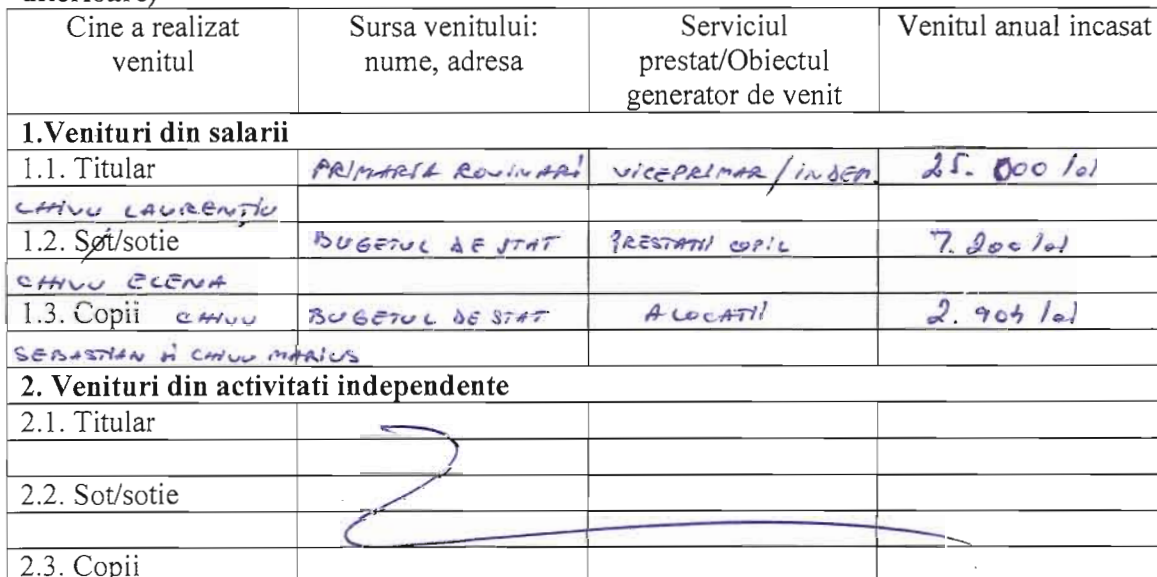 Cine a realizat venitul | Sursa venitului: nume, adresa | Serviciul prestat/Obiectul generator de venit | Venitul anual incasat
1.Venituri din salarii
1.1. Titular | PRIMARIA ROVINARI | VICEPRIMAR/INDEM. | 25.000 lei
CHIVU LAURENȚIU
1.2. Sot/sotie | BUGETUL DE STAT | PRESTATII COPIL | 7.200 lei
CHIVU ELENA
1.3. Copii CHIVU | BUGETUL DE STAT | ALOCATII | 2.904 lei
SEBASTIAN SI CHIVU MARIUS
2. Venituri din activitati independente
2.1. Titular
2.2. Sot/sotie
2.3. Copii